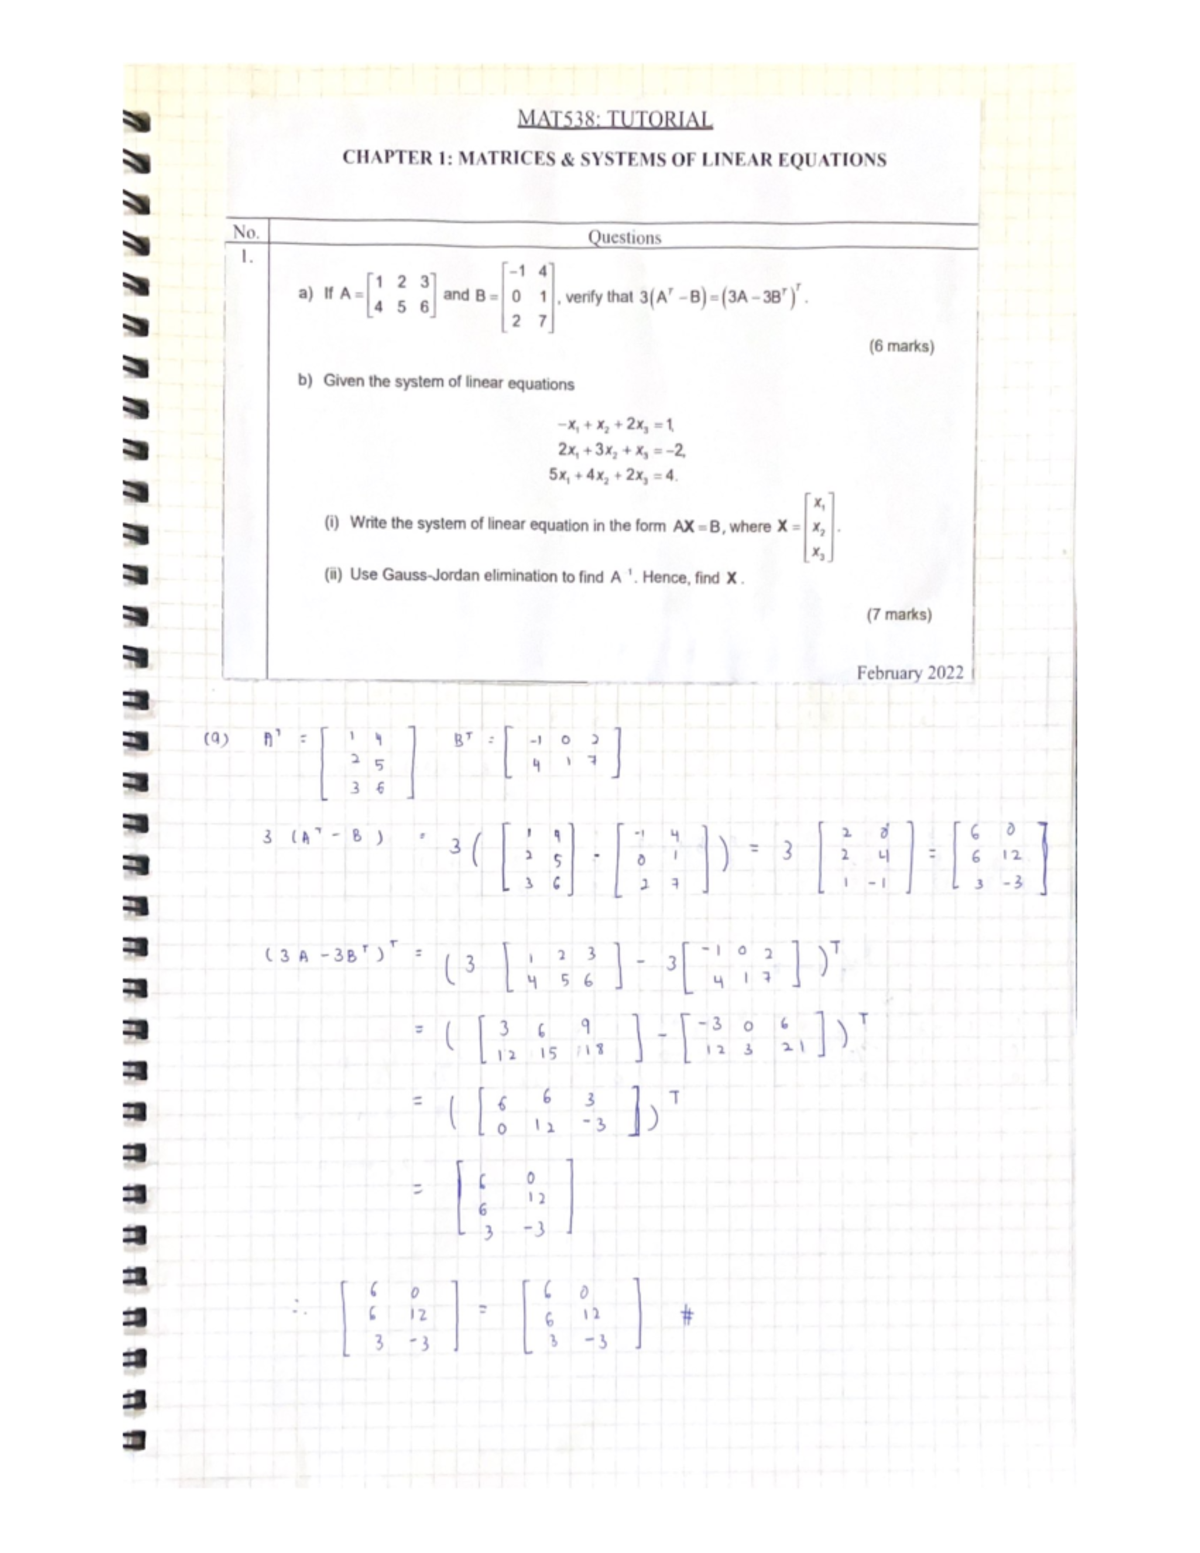 MAT538: TUTORIAL
CHAPTER 1: MATRICES & SYSTEMS OF LINEAR EQUATIONS
No. Questions
1.
a) If A = [1 2 3; 4 5 6] and B = [-1 4; 0 1; 2 7], verify that 3(Aᵀ - B) = (3A - 3Bᵀ)ᵀ.
(6 marks)
b) Given the system of linear equations
-x₁ + x₂ + 2x₃ = 1,
2x₁ + 3x₂ + x₃ = -2,
5x₁ + 4x₂ + 2x₃ = 4.
(i) Write the system of linear equation in the form AX = B, where X = [x₁; x₂; x₃].
(ii) Use Gauss-Jordan elimination to find A ¹. Hence, find X.
(7 marks)
February 2022
(a) Aᵀ = [1 4; 2 5; 3 6] Bᵀ = [-1 0 2; 4 1 7]
3 (Aᵀ - B) = 3 ([1 4; 2 5; 3 6] - [-1 4; 0 1; 2 7]) = 3 [2 0; 2 4; 1 -1] = [6 0; 6 12; 3 -3]
(3A - 3Bᵀ)ᵀ = (3 [1 2 3; 4 5 6] - 3 [-1 0 2; 4 1 7])ᵀ
= ([3 6 9; 12 15 18] - [-3 0 6; 12 3 21])ᵀ
= ([6 6 3; 0 12 -3])ᵀ
= [6 0; 6 12; 3 -3]
∴ [6 0; 6 12; 3 -3] = [6 0; 6 12; 3 -3] #